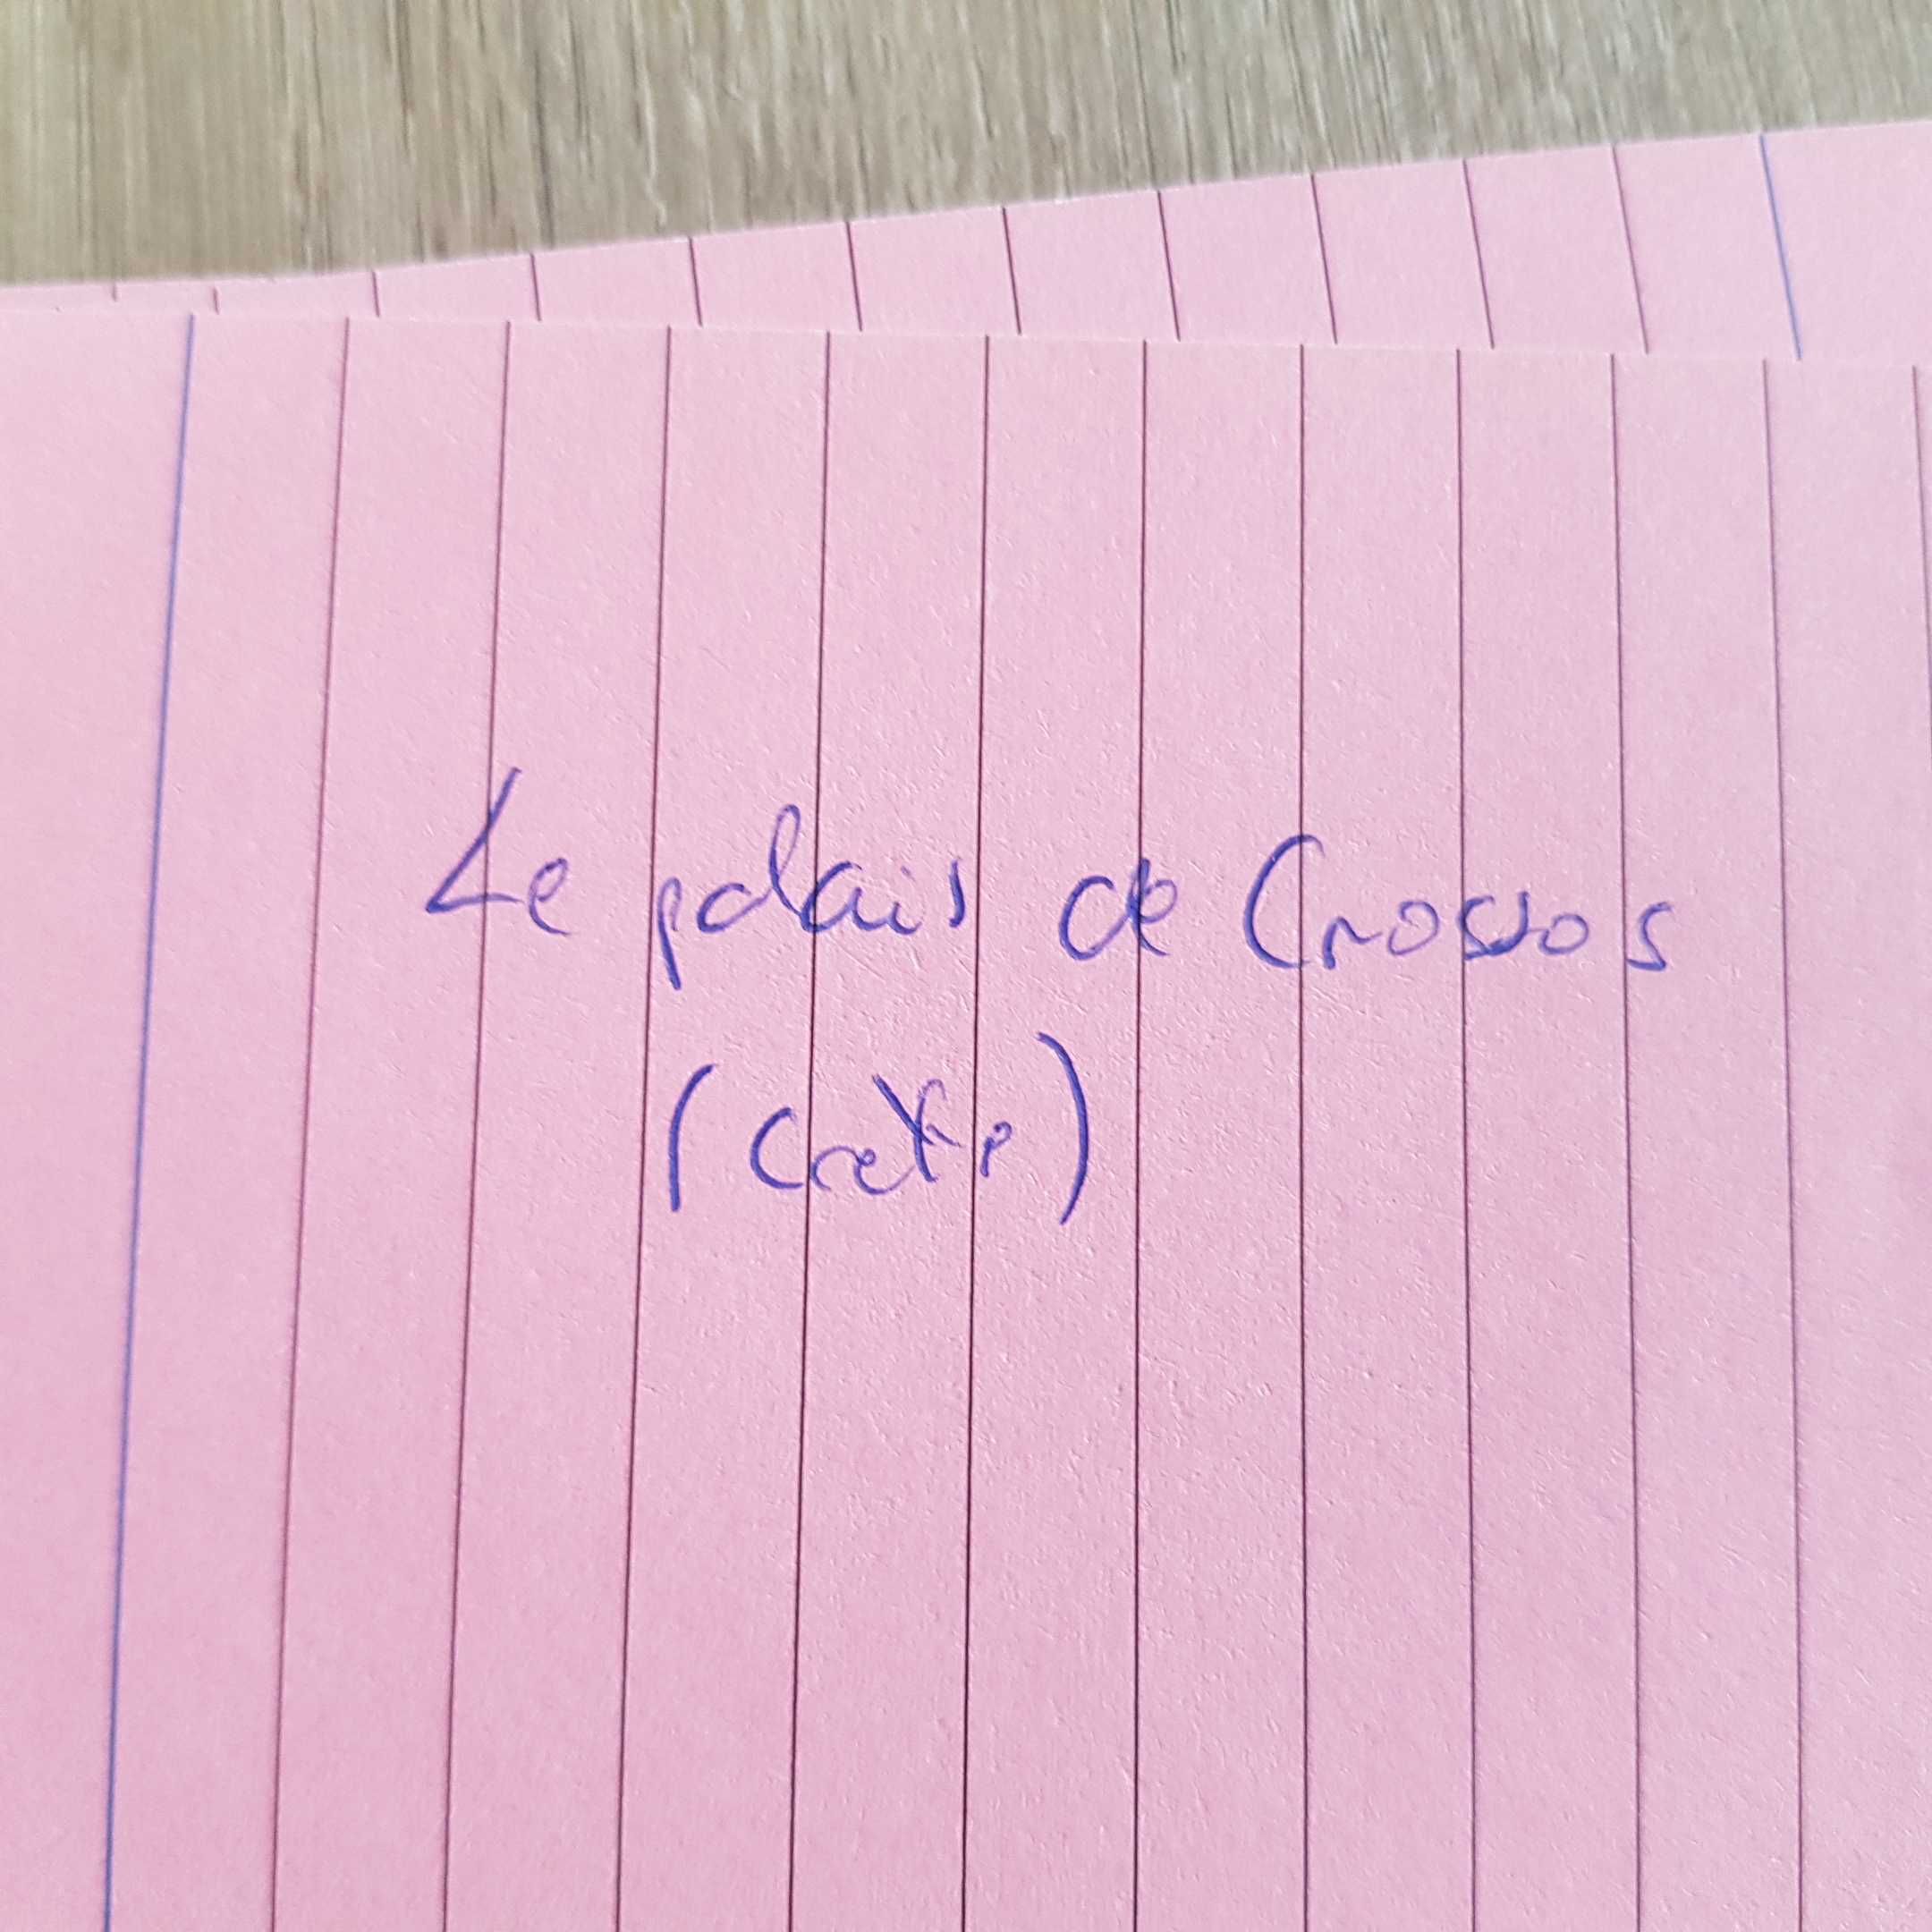 Le palais de Cnossos
(Crète)